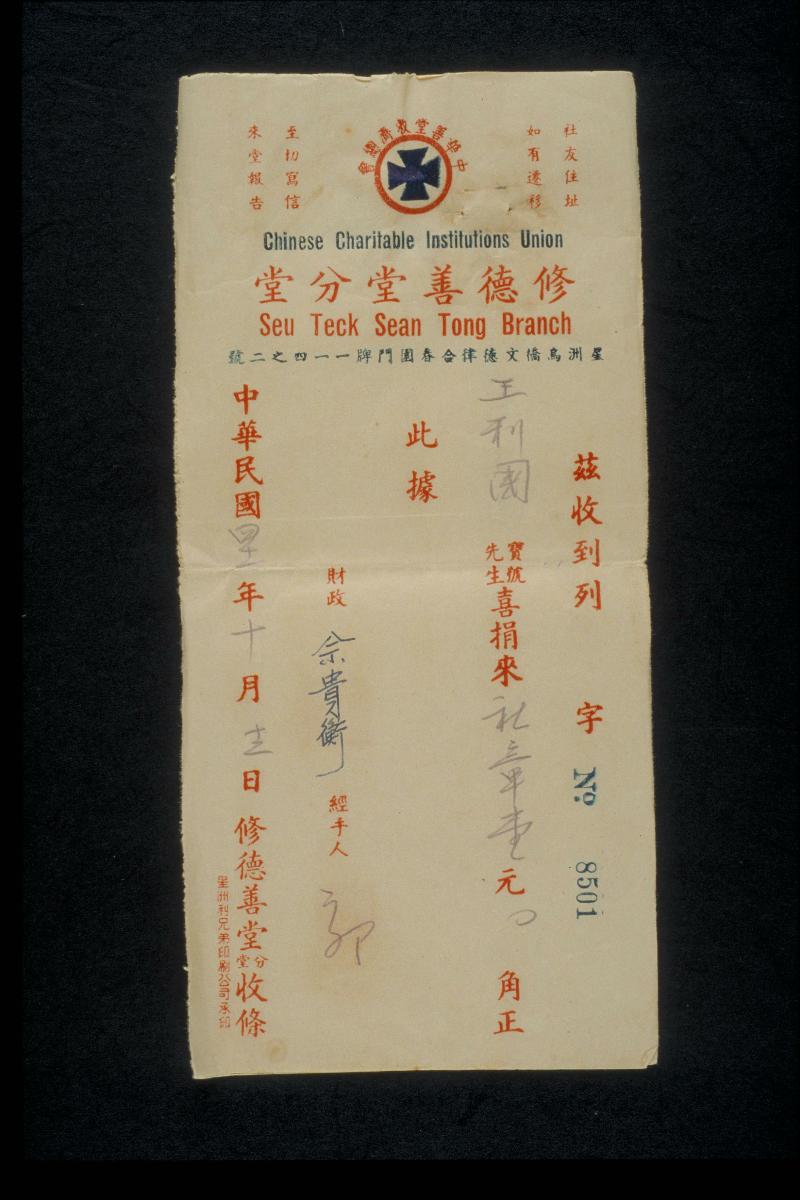 中華善堂救濟總會
社友住址
如有遷移
至切寫信
來堂報告
Chinese Charitable Institutions Union
修德善堂分堂
Seu Teck Sean Tong Branch
星洲烏橋文德律合春園門牌一一四之二號
茲收到列 字 No. 8501
王利國 寶號 先生 喜捐來 元 0 角正
此據
財政 余貴衡 經手人 郭
中華民國 年 十 月 日 修德善堂分堂收條
星洲利兄弟印刷公司承印